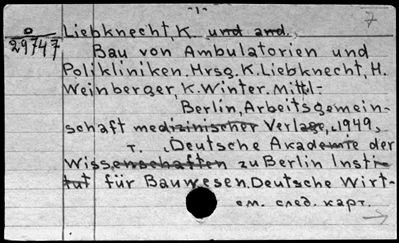 -1- 7
О
29747
Liebknecht, K. und and.
Bau von Ambulatorien und
Polikliniken. Hrsg. K. Liebknecht, H.
Weinberger, K. Winter. Mittl-
Berlin, Arbeitsgemein-
schaft medizinischer Verlage, 1949,
т. , Deutsche Akademie der
Wissenschaften zu Berlin Insti-
tut für Bauwesen. Deutsche Wirt-
см. след. карт.
→